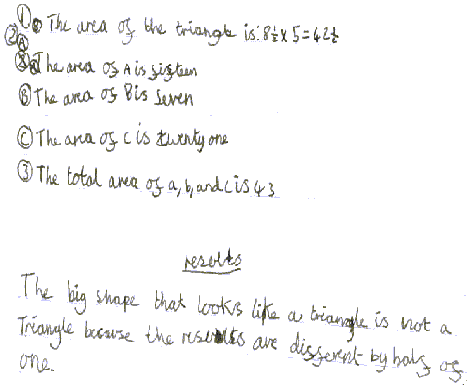 ① The area of the triangle is: 8½ x 5 = 42½
② Ⓐ The area of A is sixteen
Ⓑ The area of B is seven
Ⓒ The area of C is twenty one
③ The total area of a, b, and c is 43
results
The big shape that looks like a triangle is not a
Triangle because the results are different by half of
one.